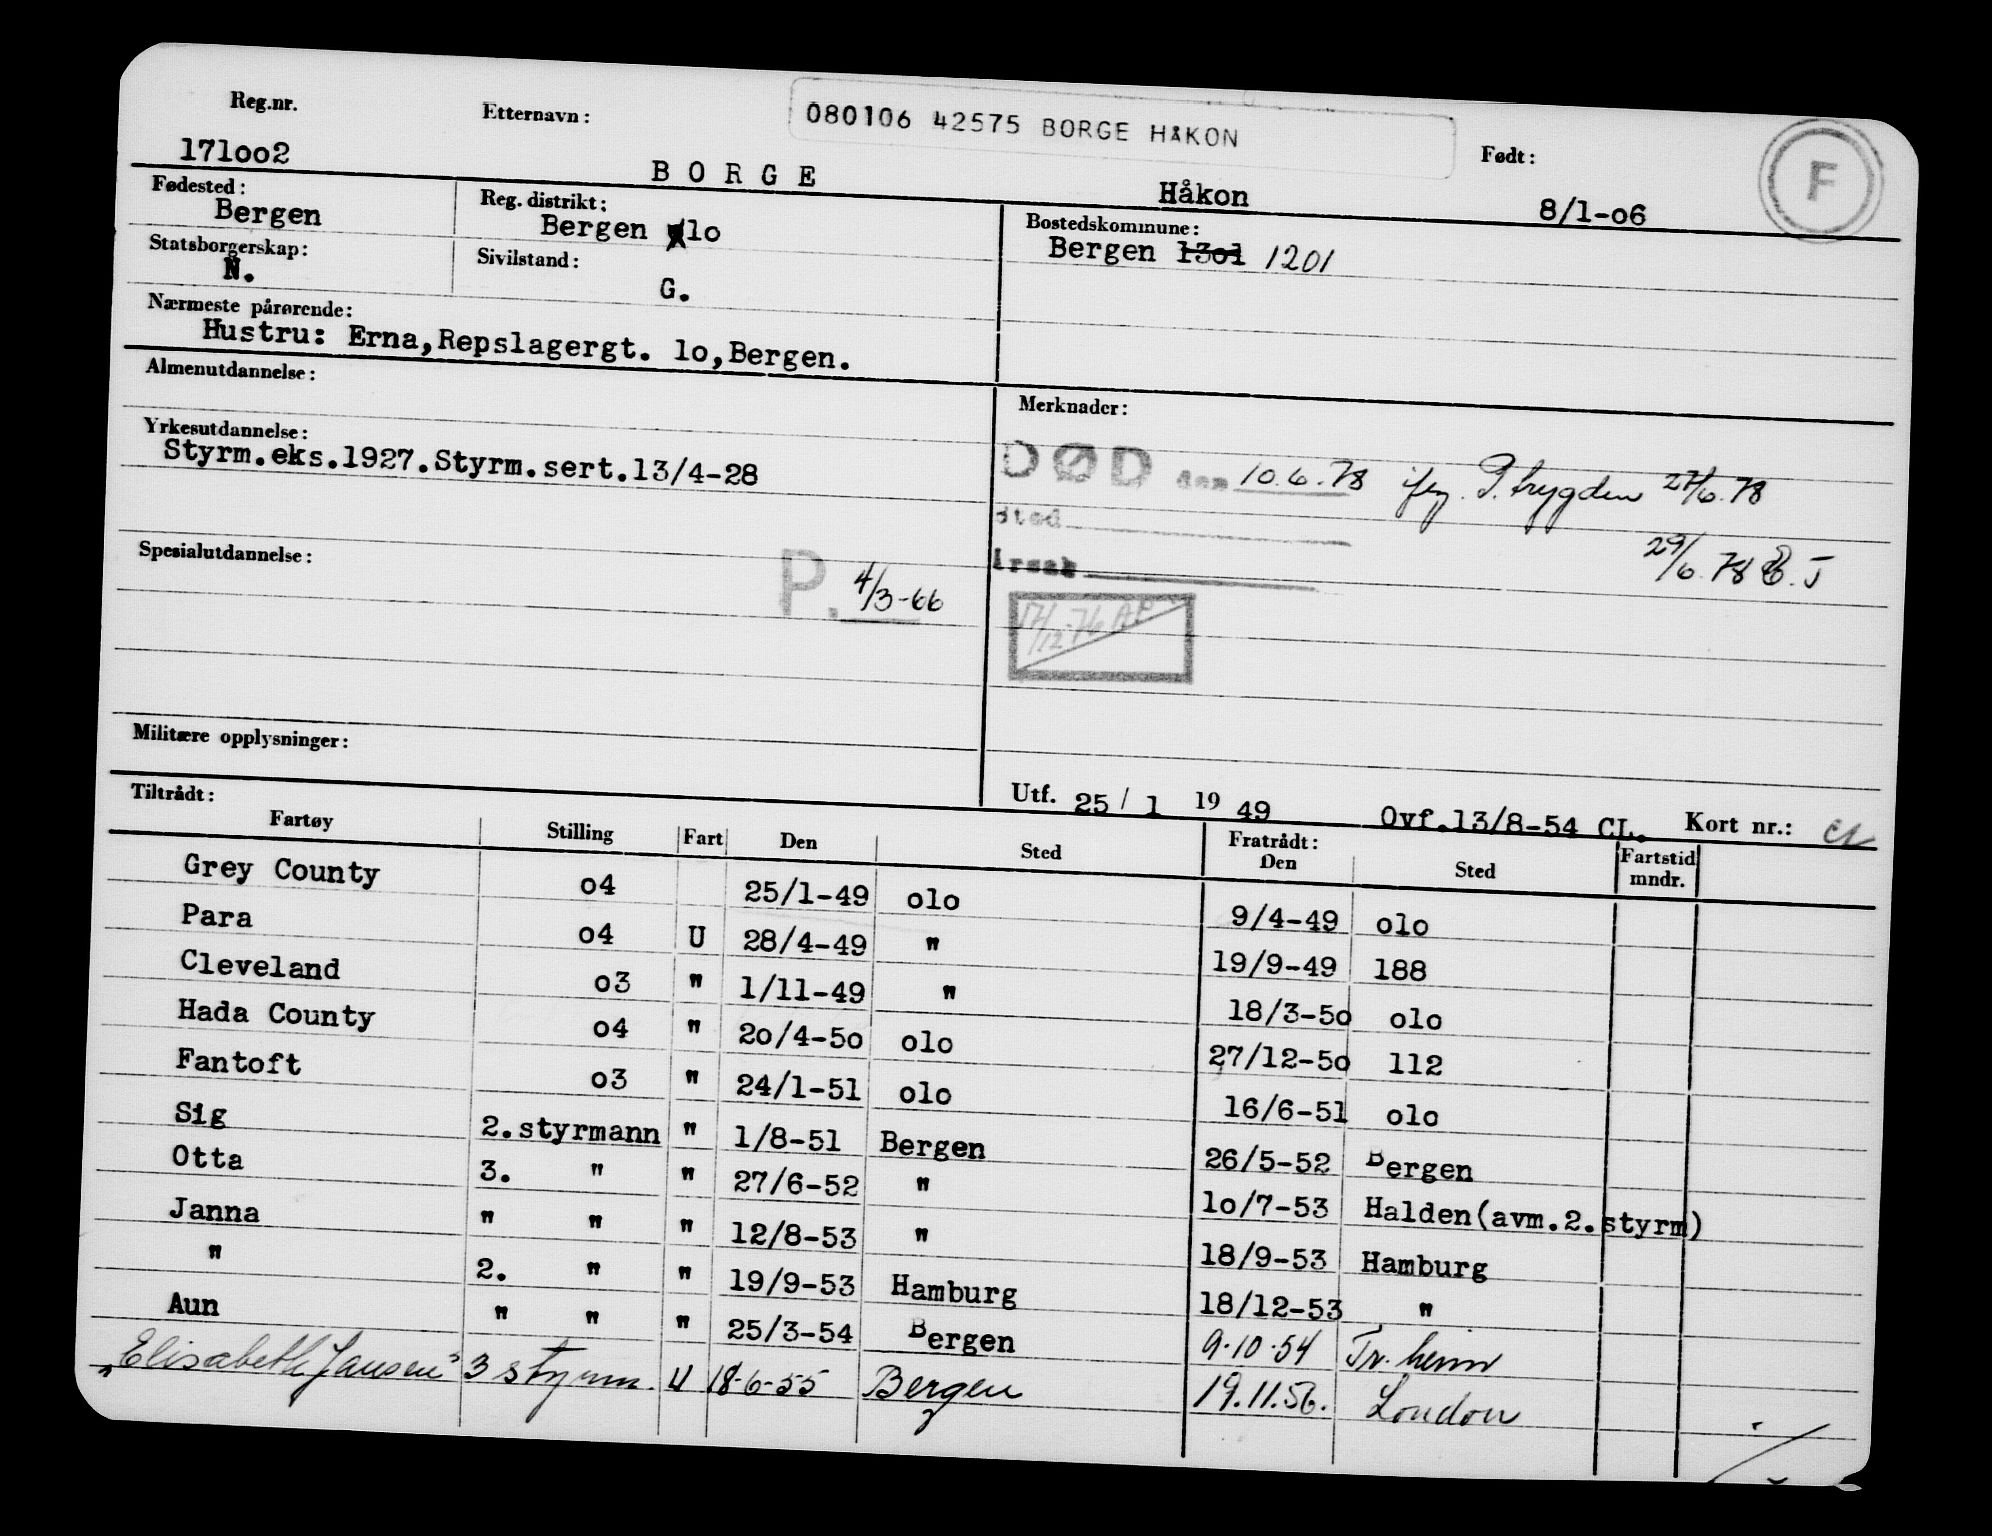 Reg.nr. Etternavn: 080106 42575 BORGE HÅKON Født: F
171oo2 B O R G E Håkon 8/1-o6
Fødested: Reg. distrikt: Bostedskommune:
Bergen Bergen lo Bergen 13o1 1201
Statsborgerskap: Sivilstand:
N. G.
Nærmeste pårørende:
Hustru: Erna,Repslagergt. 1o,Bergen.
Almenutdannelse: Merknader:
Yrkesutdannelse:
Styrm.eks.1927.Styrm.sert.13/4-28
DØD den 10.6.78 ifg. P. trygden 27/6.78
Sted
29/6.78
Årsak
Spesialutdannelse: P. 4/3-66
17/12-76 AP
Militære opplysninger:
Utf. 25/ 1 19 49 Ovf.13/8-54 CL. Kort nr.:
Tiltrådt: Fratrådt:
Fartøy Stilling Fart Den Sted Den Sted Fartstid mndr.
Grey County o4 25/1-49 olo 9/4-49 olo
Para o4 U 28/4-49 " 19/9-49 188
Cleveland o3 " 1/11-49 " 18/3-5o olo
Hada County o4 " 2o/4-5o olo 27/12-5o 112
Fantoft o3 " 24/1-51 olo 16/6-51 olo
Sig 2.styrmann " 1/8-51 Bergen 26/5-52 Bergen
Otta 3. " " 27/6-52 " 1o/7-53 Halden(avm.2.styrm)
Janna " " " 12/8-53 " 18/9-53 Hamburg
" 2. " " 19/9-53 Hamburg 18/12-53 "
Aun " " " 25/3-54 Bergen 9.10.54 Tr.heim
"Elisabeth Jansen" 3 styrm. U 18-6-55 Bergen 19.11.56. London